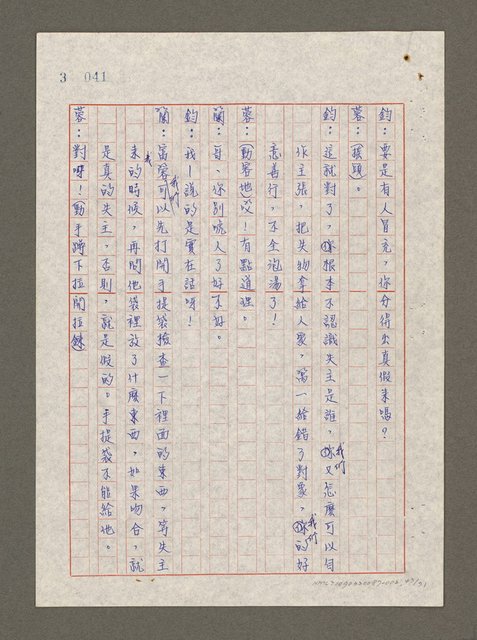 3 041
鈞：要是有人冒充，你分得出真假來嗎？
蓉：（搖頭）。
鈞：這就對了，你根本不認識失主是誰，我們又怎麼可以自
作主張，把失物拿給人家，萬一給錯了對象，我們的好
意善行，不全泡湯了！
蓉：（動容地）哎！有點道理。
蘭：哥，你別唬人了好不好。
鈞：我－說的是實在話呀！
蘭：蓉蓉，我們可以先打開手提袋檢查一下裡面的東西，等失主
來的時候，再問他袋裡放了什麼東西，如果吻合，就
是真的失主，否則，就是假的。手提袋不能給他。
蓉：對呀！（動手蹲下拉開拉鍊）